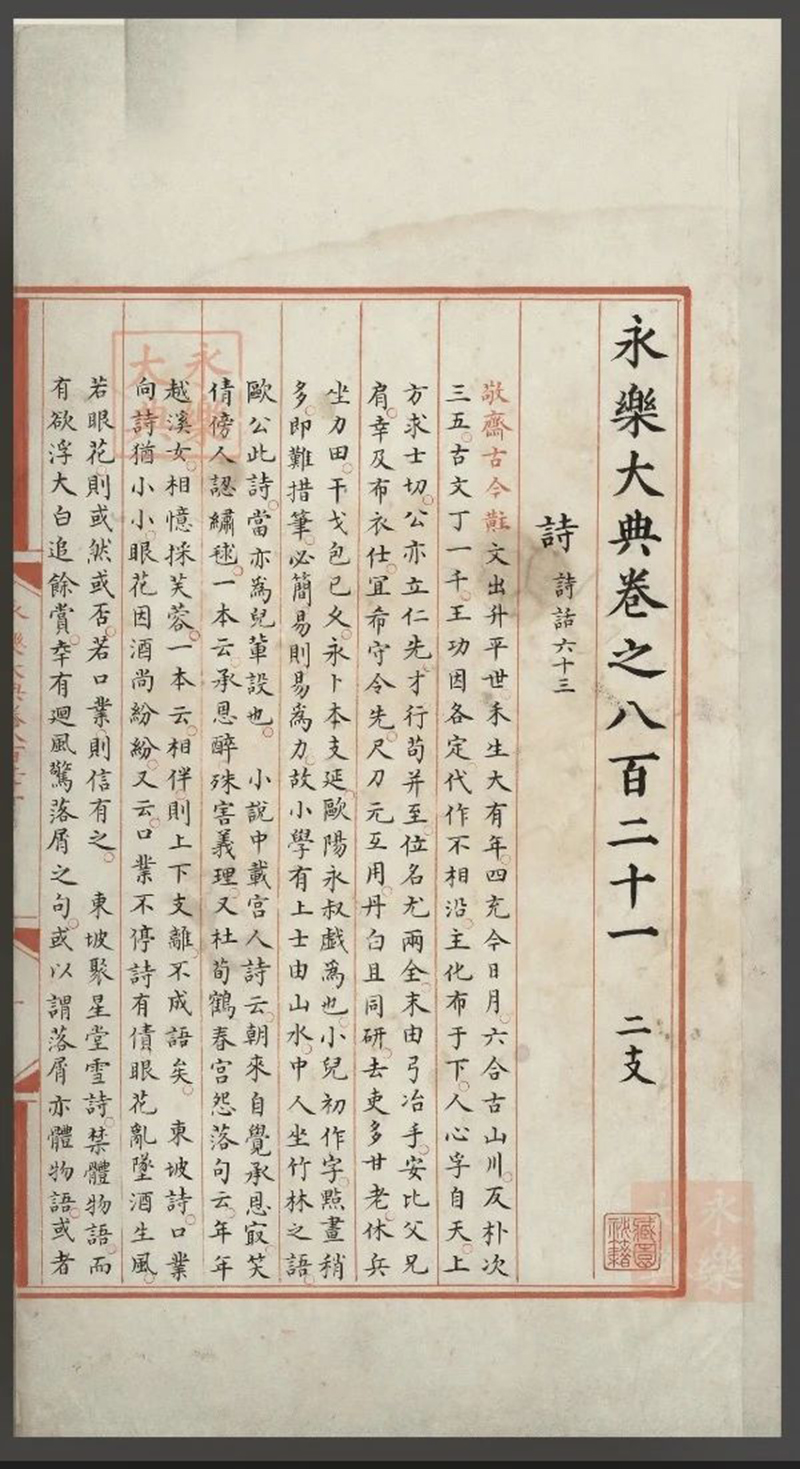 永樂大典卷之八百二十一 二支
詩 詩話六十三
敬齋古今黈文出升平世禾生大有年四充今日月六合古山川反朴次
三五古文丁一千王功因各定代作不相沿主化布于下人心孚自天上
方求士切公亦立仁先才行苟并至位名尤兩全末由弓冶手安比父兄
肩幸及布衣仕宜希守令先尺刀元互用丹白且同研去吏多甘老休兵
坐力田干戈包已久永卜本支延歐陽永叔戲爲也小兒初作字點畫稍
多即難措筆必簡易則易爲力故小學有上士由山水中人坐竹林之語
歐公此詩當亦爲兒軰設也 小說中載宮人詩云朝來自覺承恩㝡笑
倩傍人認繡毬一本云承恩醉殊害義理又杜荀鶴春宮怨落句云年年
越溪女相憶採芙蓉一本云相伴則上下支離不成語矣 東坡詩口業
向詩猶小小眼花因酒尚紛紛又云口業不停詩有債眼花亂墜酒生風
若眼花則或然或否若口業則信有之 東坡聚星堂雪詩禁體物語而
有欲浮大白追餘賞幸有廻風驚落屑之句或以謂落屑亦體物語或者
藏園秘籍
永樂大典